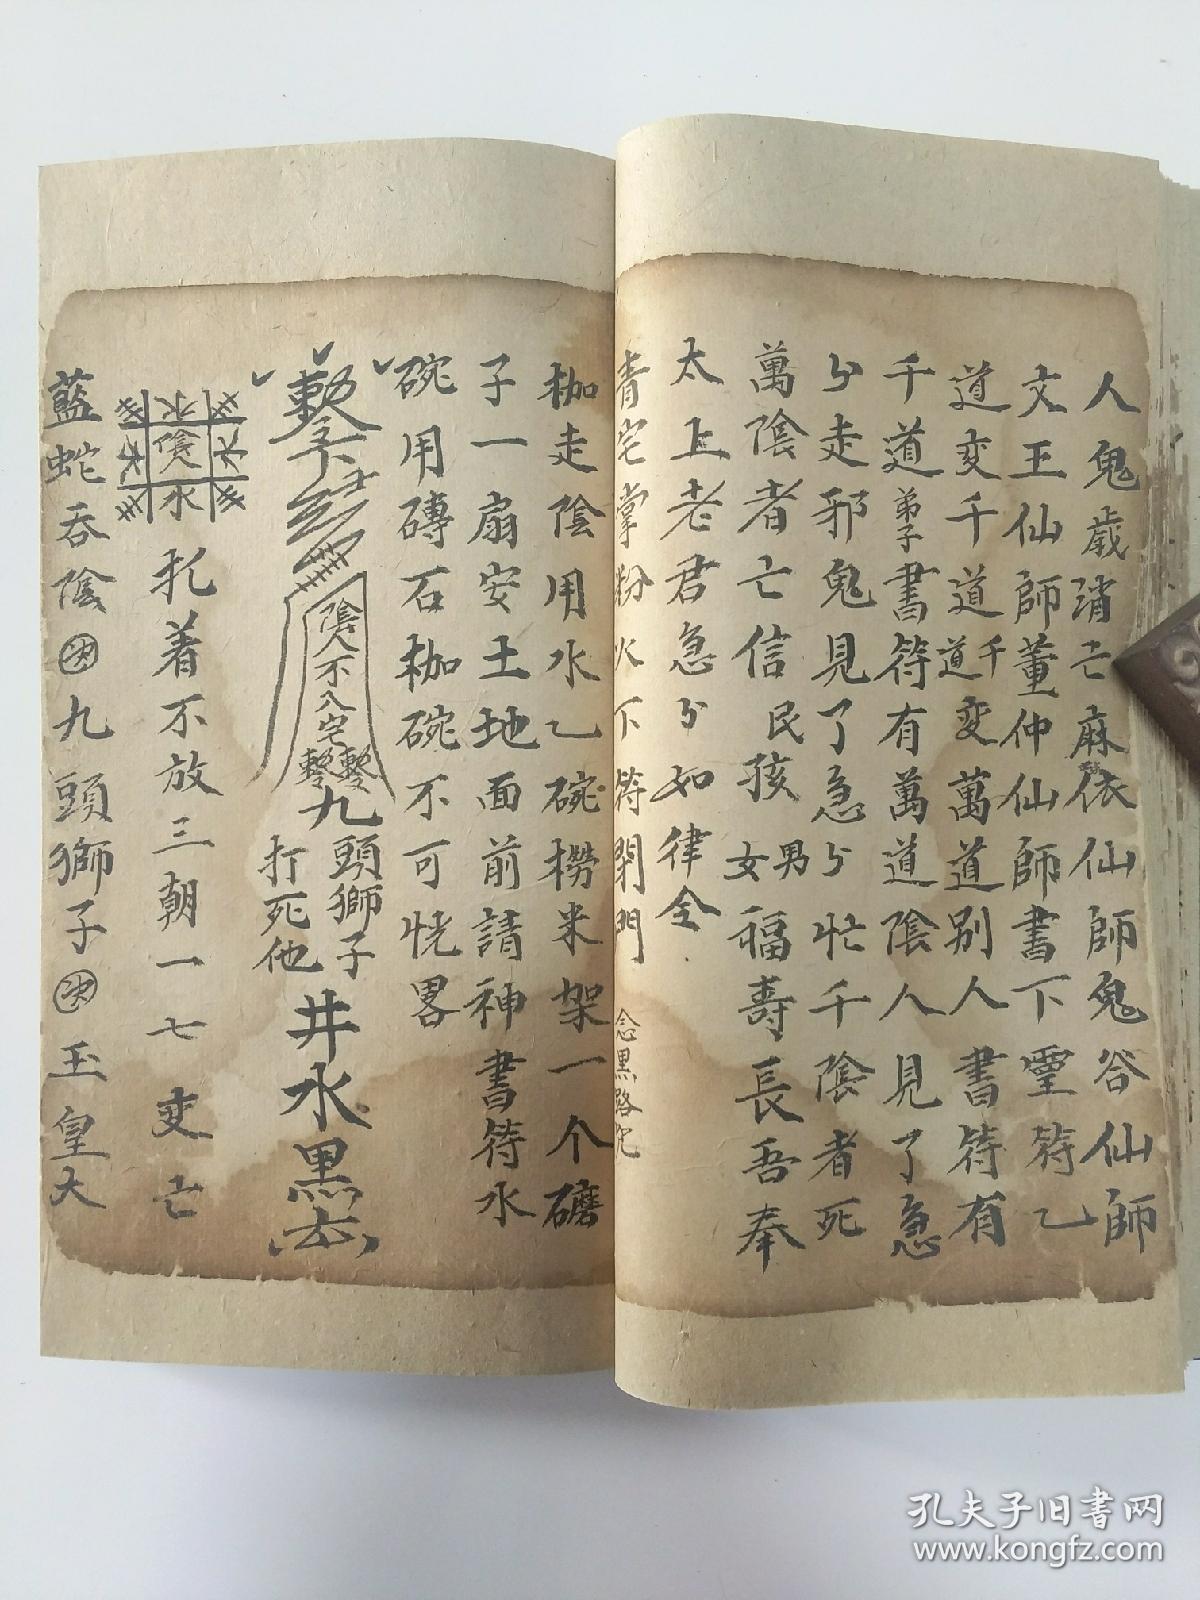 人鬼歳消亡麻依仙師鬼谷仙師
文王仙師董仲仙師書下靈符乙
道变千道千道变萬道別人書符有
千道弟子書符有萬道陰人見了急
分走邪鬼見了急分忙千陰者死
萬陰者亡信民孩男女福壽長吾奉
太上老君急分如律令
青宅掌粉火下符閉門
念黑路咒
枷走陰用水乙碗撈米架一个礳
子一扇安土地面前請神書符水
碗用磚石枷碗不可恍畧
陰人不入宅
九頭獅子打死他
井水黑
水陰水水
扎着不放三朝一七变亡
藍蛇吞陰九頭獅子玉皇大
孔夫子旧书网
www.kongfz.com